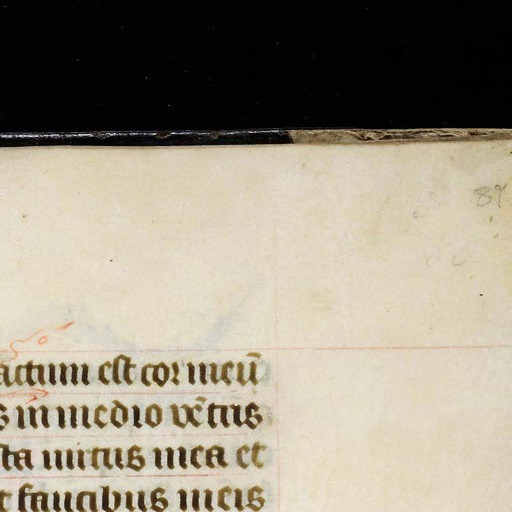 89
actum est cor meū
s in medio vētris
sta uirtus mea et
t faucibus meis